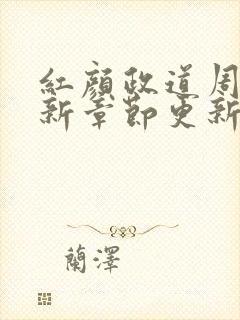 紅顏政道周
新章節更新
蘭澤